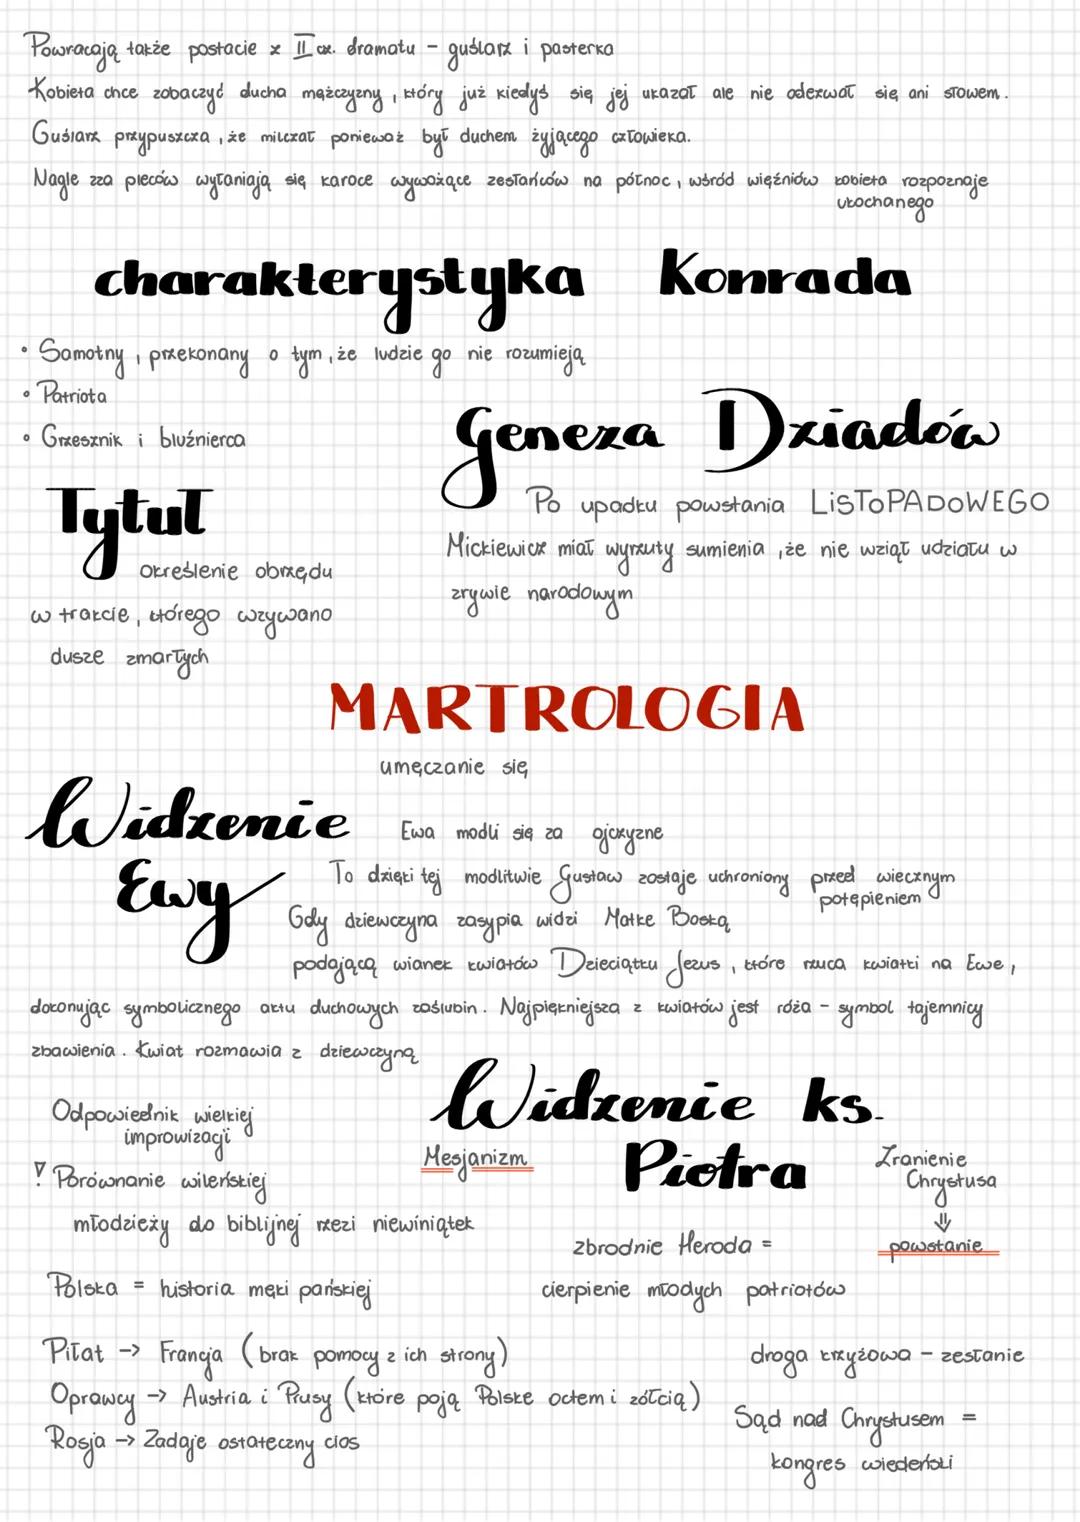 Powracają także postacie z II cz. dramatu - guślarz i pasterka
Kobieta chce zobaczyć ducha mężczyzny, który już kiedyś się jej ukazał ale nie odezwał się ani słowem.
Guślarz przypuszcza, że milczał ponieważ był duchem żyjącego człowieka.
Nagle zza pleców wyłaniają się karoce wywożące zesłańców na północ, wśród więźniów kobieta rozpoznaje
ukochanego
charakterystyka Konrada
• Samotny, przekonany o tym, że ludzie go nie rozumieją
• Patriota
• Grzesznik i bluźnierca
Geneza Dziadów
Po upadku powstania LISTOPADOWEGO
Mickiewicz miał wyrzuty sumienia, że nie wziął udziału w
zrywie narodowym
Tytuł
określenie obrzędu
w trakcie, którego wzywano
dusze zmarłych
MARTROLOGIA
umęczanie się
Widzenie
Ewy
Ewa modli się za ojczyzne
To dzięki tej modlitwie Gustaw zostaje uchroniony przed wiecznym
potępieniem
Gdy dziewczyna zasypia widzi Matke Boską
podającą wianek kwiatów Dzieciątku Jezus, które rzuca kwiatki na Ewe,
dokonując symbolicznego aktu duchowych zaślubin. Najpiękniejsza z kwiatów jest róża - symbol tajemnicy
zbawienia. Kwiat rozmawia z dziewczyną
Widzenie ks.
Piotra
Odpowiednik wielkiej
improwizacji
Mesjanizm
! Porównanie wileńskiej
młodzieży do biblijnej rzezi niewiniątek
Zranienie
Chrystusa
⇓
powstanie
zbrodnie Heroda =
cierpienie młodych patriotów
Polska = historia męki pańskiej
Piłat -> Francja (brak pomocy z ich strony)
Oprawcy -> Austria i Prusy (które poją Polske octem i żółcią)
Rosja -> Zadaje ostateczny cios
droga krzyżowa - zesłanie
Sąd nad Chrystusem =
kongres wiedeński